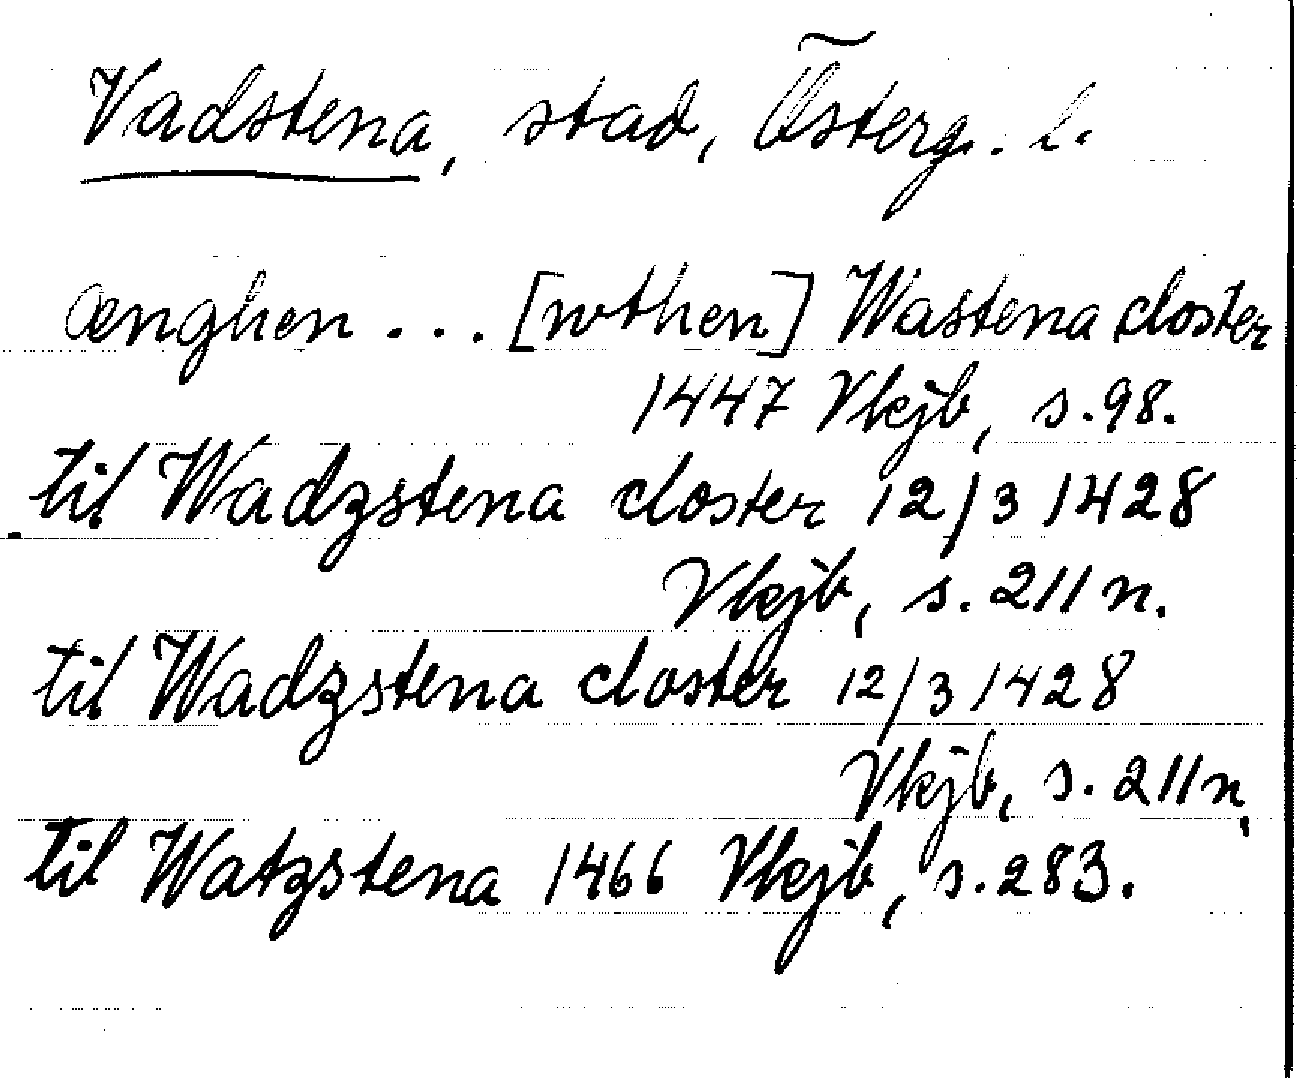 Vadstena, stad, Österg. l.
ænghen ... [wthen] Wastena closter
1447 Vkjb, s. 98.
til Wadzstena closter 12/3 1428
Vkjb, s. 211 n.
til Wadzstena closter 12/3 1428
Vkjb, s. 211 n.
til Watzstena 1466 Vkjb, s. 283.